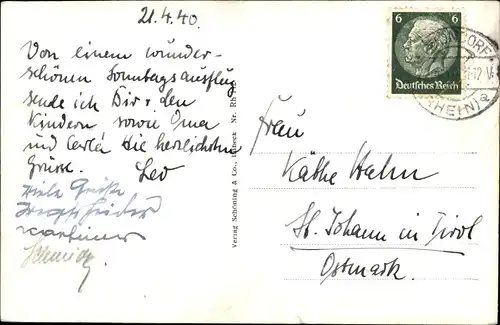 21.4.40.
Von einem wunder-
schönen Sonntagsausflug
sende ich Dir u. den
Kindern sowie Oma
und Carla die herzlichsten
Grüsse. Leo
Viele Grüße
Schmidt
Verlag Schöning & Co., Lübeck Nr. Rh
6 6
Deutsches Reich
DORF
12 V
(RHEIN) a
Frau
Käthe Hahn
St. Johann in Tirol
Ostmark.